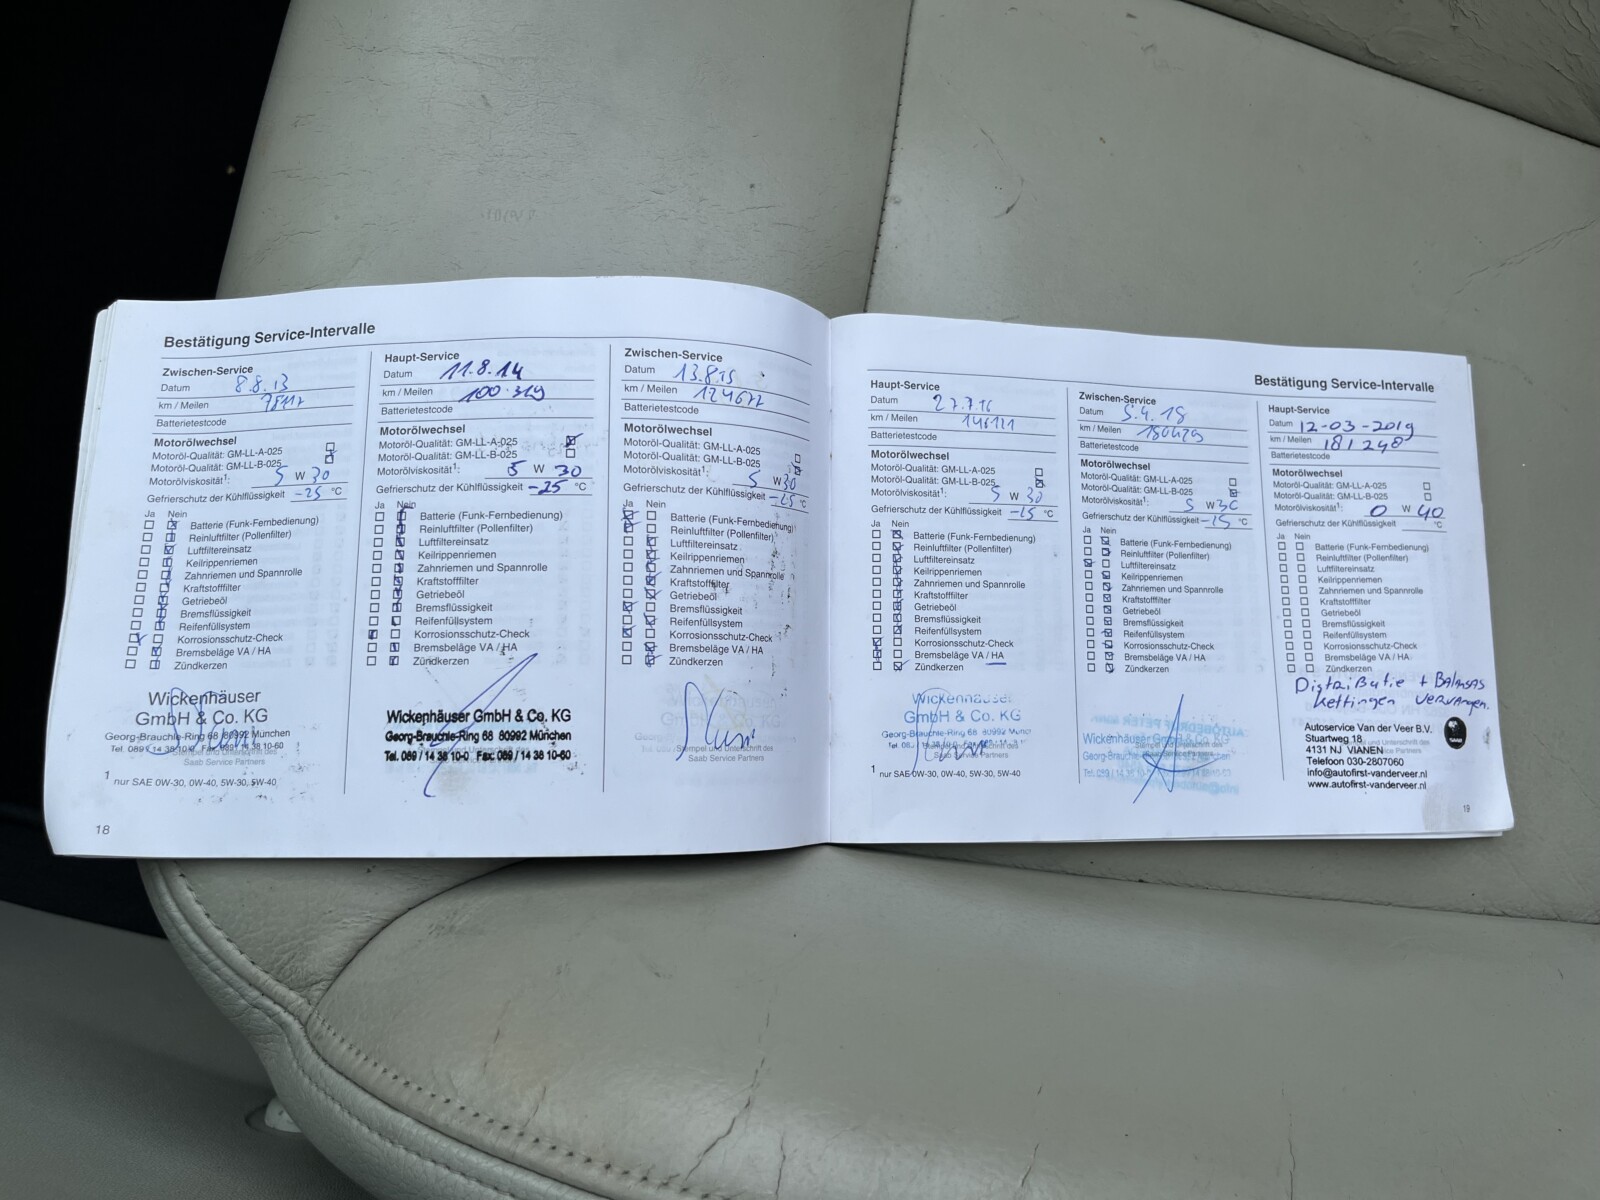 Bestätigung Service-Intervalle
Zwischen-Service
Datum 8.8.13
km / Meilen 78117
Batterietestcode
Motorölwechsel
Motoröl-Qualität: GM-LL-A-025
Motoröl-Qualität: GM-LL-B-025
Motorölviskosität1: 5 W 30
Gefrierschutz der Kühlflüssigkeit -25 °C
Ja Nein
Batterie (Funk-Fernbedienung)
Reinluftfilter (Pollenfilter)
Luftfiltereinsatz
Keilrippenriemen
Zahnriemen und Spannrolle
Kraftstofffilter
Getriebeöl
Bremsflüssigkeit
Reifenfüllsystem
Korrosionsschutz-Check
Bremsbeläge VA / HA
Zündkerzen
Wickenhäuser
GmbH & Co. KG
Georg-Brauchle-Ring 68 80992 München
Tel. 089 / 14 38 10-0 Fax 089 / 14 38 10-60
Stempel und Unterschrift des
Saab Service Partners
1 nur SAE 0W-30, 0W-40, 5W-30, 5W-40
18
Haupt-Service
Datum 11.8.14
km / Meilen 100.319
Batterietestcode
Motorölwechsel
Motoröl-Qualität: GM-LL-A-025
Motoröl-Qualität: GM-LL-B-025
Motorölviskosität1: 5 W 30
Gefrierschutz der Kühlflüssigkeit -25 °C
Ja Nein
Batterie (Funk-Fernbedienung)
Reinluftfilter (Pollenfilter)
Luftfiltereinsatz
Keilrippenriemen
Zahnriemen und Spannrolle
Kraftstofffilter
Getriebeöl
Bremsflüssigkeit
Reifenfüllsystem
Korrosionsschutz-Check
Bremsbeläge VA / HA
Zündkerzen
Wickenhäuser GmbH & Co. KG
Georg-Brauchle-Ring 68 80992 München
Tel. 089 / 14 38 10-0 Fax: 089 / 14 38 10-60
Zwischen-Service
Datum 13.8.15
km / Meilen 124677
Batterietestcode
Motorölwechsel
Motoröl-Qualität: GM-LL-A-025
Motoröl-Qualität: GM-LL-B-025
Motorölviskosität1: 5 W 30
Gefrierschutz der Kühlflüssigkeit -25 °C
Ja Nein
Batterie (Funk-Fernbedienung)
Reinluftfilter (Pollenfilter)
Luftfiltereinsatz
Keilrippenriemen
Zahnriemen und Spannrolle
Kraftstofffilter
Getriebeöl
Bremsflüssigkeit
Reifenfüllsystem
Korrosionsschutz-Check
Bremsbeläge VA / HA
Zündkerzen
Stempel und Unterschrift des
Saab Service Partners
Bestätigung Service-Intervalle
Haupt-Service
Datum 27.7.16
km / Meilen 146121
Batterietestcode
Motorölwechsel
Motoröl-Qualität: GM-LL-A-025
Motoröl-Qualität: GM-LL-B-025
Motorölviskosität1: 5 W 30
Gefrierschutz der Kühlflüssigkeit -25 °C
Ja Nein
Batterie (Funk-Fernbedienung)
Reinluftfilter (Pollenfilter)
Luftfiltereinsatz
Keilrippenriemen
Zahnriemen und Spannrolle
Kraftstofffilter
Getriebeöl
Bremsflüssigkeit
Reifenfüllsystem
Korrosionsschutz-Check
Bremsbeläge VA / HA
Zündkerzen
Wickenhäuser
GmbH & Co. KG
Georg-Brauchle-Ring 68 80992
Saab Service Partners
1 nur SAE 0W-30, 0W-40, 5W-30, 5W-40
Zwischen-Service
Datum 5.4.18
km / Meilen 180429
Batterietestcode
Motorölwechsel
Motoröl-Qualität: GM-LL-A-025
Motoröl-Qualität: GM-LL-B-025
Motorölviskosität1: 5 W 30
Gefrierschutz der Kühlflüssigkeit -25 °C
Ja Nein
Batterie (Funk-Fernbedienung)
Reinluftfilter (Pollenfilter)
Luftfiltereinsatz
Keilrippenriemen
Zahnriemen und Spannrolle
Kraftstofffilter
Getriebeöl
Bremsflüssigkeit
Reifenfüllsystem
Korrosionsschutz-Check
Bremsbeläge VA / HA
Zündkerzen
Wickenhäuser GmbH & Co. KG
Haupt-Service
Datum 12-03-2019
km / Meilen 181240
Batterietestcode
Motorölwechsel
Motoröl-Qualität: GM-LL-A-025
Motoröl-Qualität: GM-LL-B-025
Motorölviskosität1: 0 W 40
Gefrierschutz der Kühlflüssigkeit °C
Ja Nein
Batterie (Funk-Fernbedienung)
Reinluftfilter (Pollenfilter)
Luftfiltereinsatz
Keilrippenriemen
Zahnriemen und Spannrolle
Kraftstofffilter
Getriebeöl
Bremsflüssigkeit
Reifenfüllsystem
Korrosionsschutz-Check
Bremsbeläge VA / HA
Zündkerzen
Distributie + Balansas
kettingen vervangen.
Autoservice Van der Veer B.V.
Stuartweg 18
4131 NJ VIANEN
Telefoon 030-2807060
info@autofirst-vanderveer.nl
www.autofirst-vanderveer.nl
19